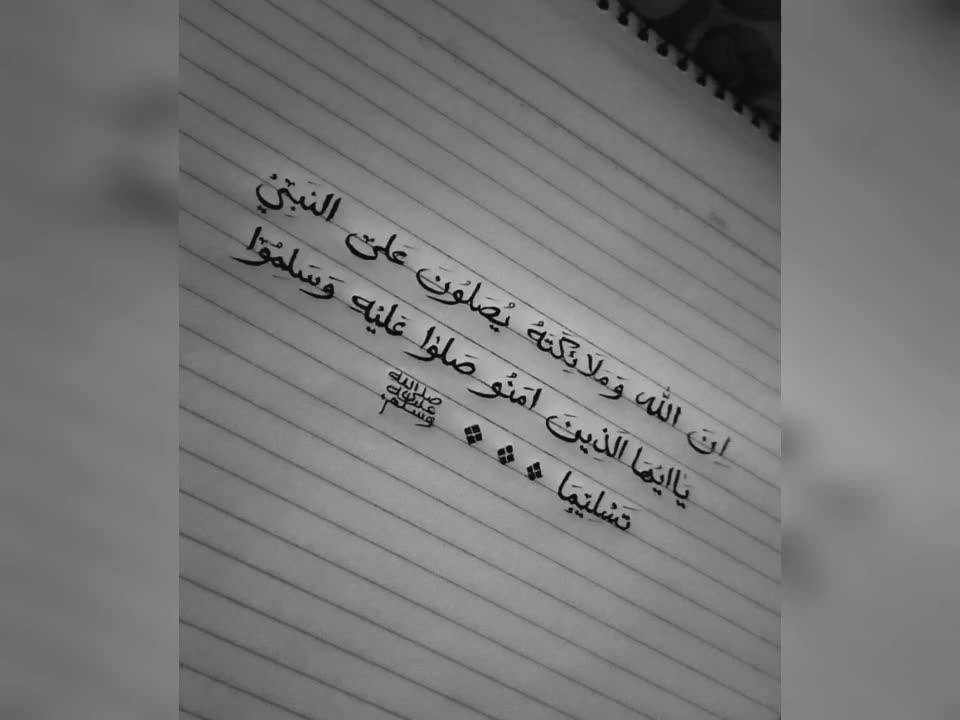 اِنَ الله وَمَلائِكَتَهُ يُصَلُونَ عَلىٰ النَبِيُ
يَاايُهَا الَذِينَ امَنُو صَلوٰا عَليْهِ وَسَلِمُوْا
تَسْلِيْمَا ❖❖❖ ﷺ